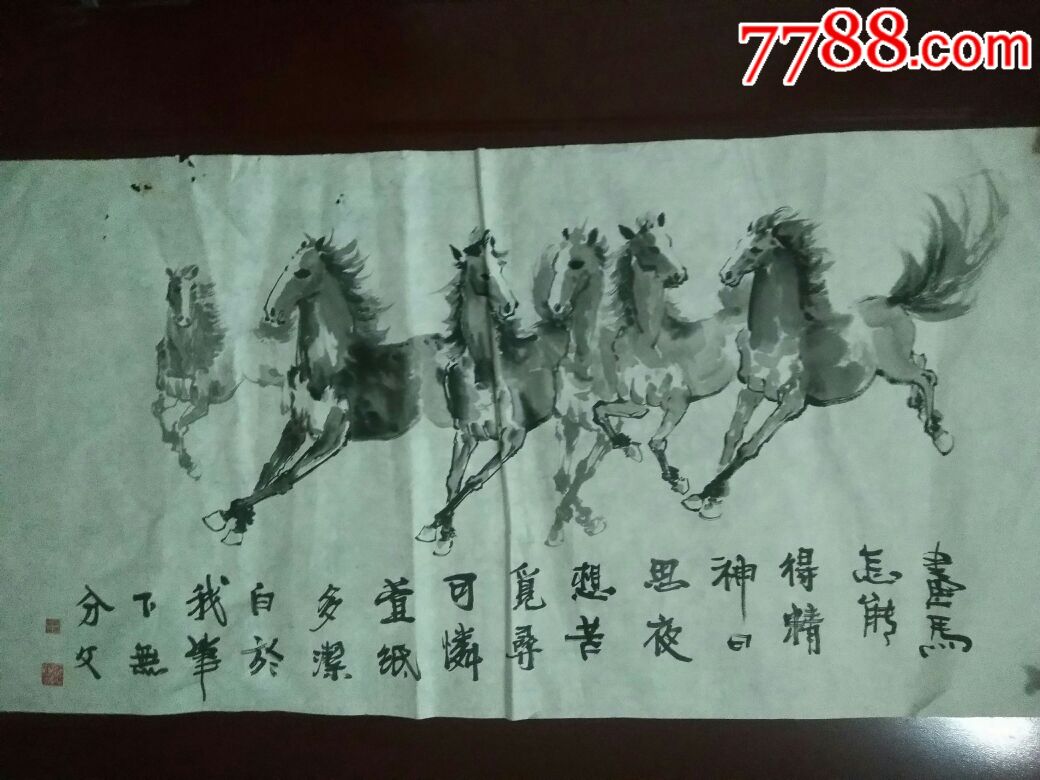 7788.com
畫馬
怎能
得精
神日
思夜
想苦
覓尋
可憐
萱紙
多潔
白於
我筆
下無
分文